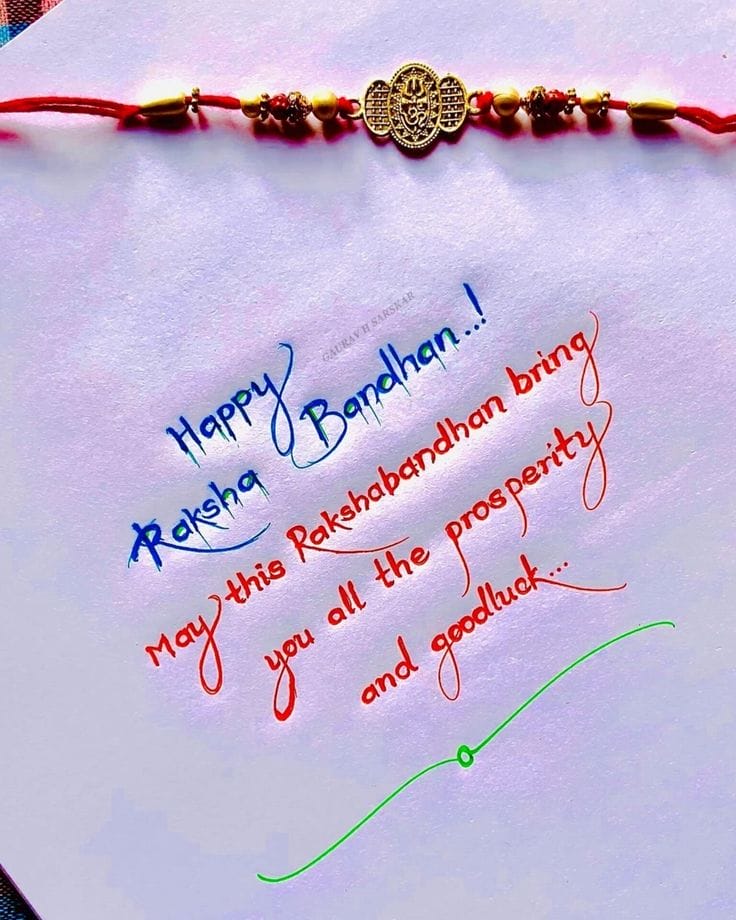 GAURAV H SARSKAR
Happy
Raksha Bandhan..!
May this Rakshabandhan bring
you all the prosperity
and goodluck...